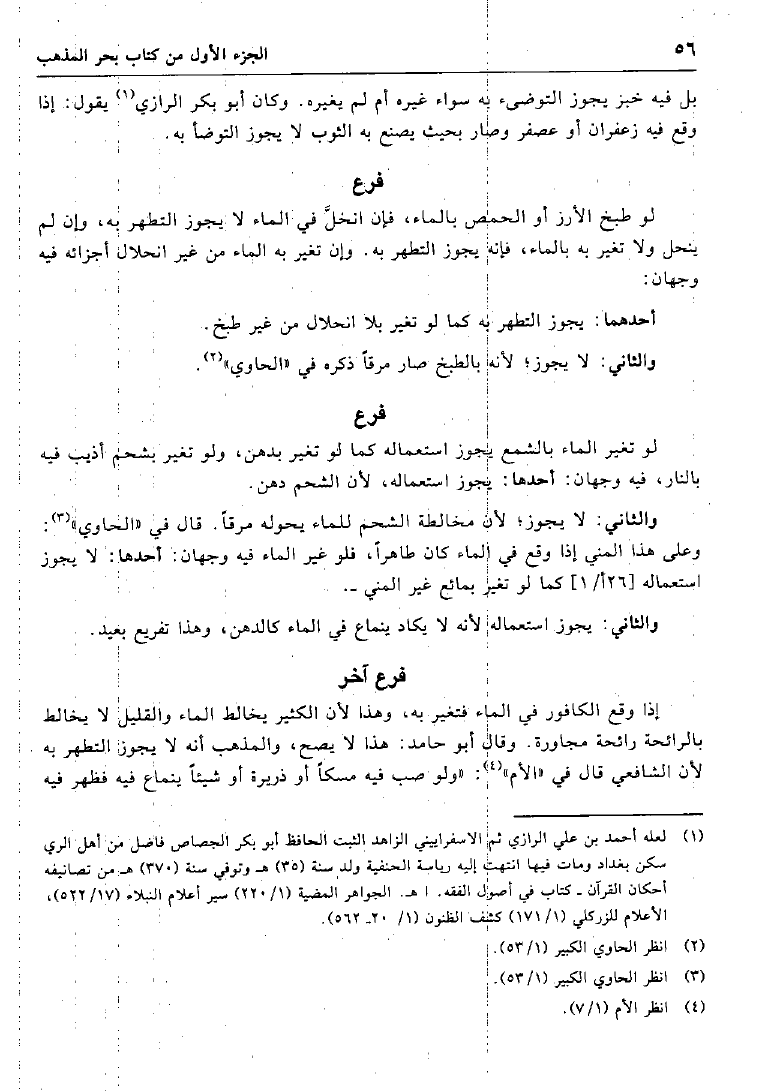 ٥٦ الجزء الأول من كتاب بحر المذهب
بل فيه خبز يجوز التوضىء به سواء غيره أم لم يغيره. وكان أبو بكر الرازي(١) يقول: إذا
وقع فيه زعفران أو عصفر وصار بحيث يصنع به الثوب لا يجوز التوضأ به.
فرع
لو طبخ الأرز أو الحمص بالماء، فإن انحلَّ في الماء لا يجوز التطهر به، وإن لم
ينحل ولا تغير به بالماء، فإنه يجوز التطهر به. وإن تغير به الماء من غير انحلال أجزائه فيه
وجهان:
أحدهما: يجوز التطهر به كما لو تغير بلا انحلال من غير طبخ.
والثاني: لا يجوز؛ لأنه بالطبخ صار مرقاً ذكره في «الحاوي»(٢).
فرع
لو تغير الماء بالشمع يجوز استعماله كما لو تغير بدهن، ولو تغير بشحم أذيب فيه
بالنار، فيه وجهان: أحدها: يجوز استعماله، لأن الشحم دهن.
والثاني: لا يجوز؛ لأن مخالطة الشحم للماء يحوله مرقاً. قال في «الحاوي»(٣):
وعلى هذا المني إذا وقع في الماء كان طاهراً، فلو غير الماء فيه وجهان: أحدها: لا يجوز
استعماله [٢٦أ/ ١] كما لو تغير بمائع غير المني -.
والثاني: يجوز استعماله لأنه لا يكاد ينماع في الماء كالدهن، وهذا تفريع بعيد.
فرع آخر
إذا وقع الكافور في الماء فتغير به، وهذا لأن الكثير يخالط الماء والقليل لا يخالط
بالرائحة رائحة مجاورة. وقال أبو حامد: هذا لا يصح، والمذهب أنه لا يجوز التطهر به
لأن الشافعي قال في «الأم»(٤): «ولو صب فيه مسكاً أو ذريرة أو شيئاً ينماع فيه فظهر فيه
(١) لعله أحمد بن علي الرازي ثم الاسفراييني الزاهد الثبت الحافظ أبو بكر الجصاص فاضل من أهل الري
سكن بغداد ومات فيها انتهت إليه رياسة الحنفية ولد سنة (٣٥) هـ وتوفي سنة (٣٧٠) هـ من تصانيفه
أحكان القرآن ـ كتاب في أصول الفقه. ا هـ. الجواهر المضية (١/ ٢٢٠) سير أعلام النبلاء (١٧/ ٥٢٢)،
الأعلام للزركلي (١/ ١٧١) كشف الظنون (١/ ٢٠ـ ٥٦٢).
(٢) انظر الحاوي الكبير (١/ ٥٣).
(٣) انظر الحاوي الكبير (١/ ٥٣).
(٤) انظر الأم (١/ ٧).